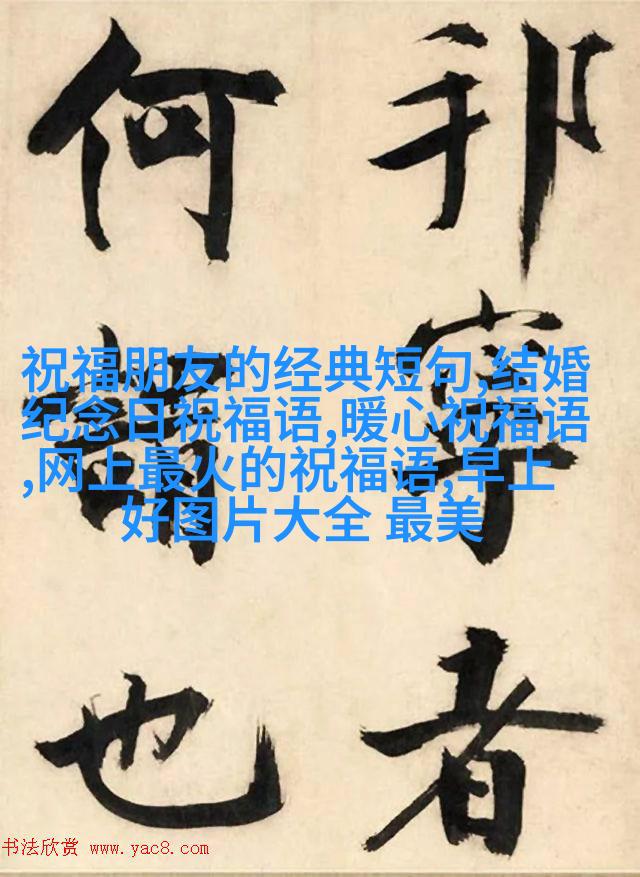 邦寧者
何謂也
祝福朋友的经典短句,结婚
纪念日祝福语,暖心祝福语
,网上最火的祝福语,早上
好图片大全 最美
书法欣赏 www.yac8.com